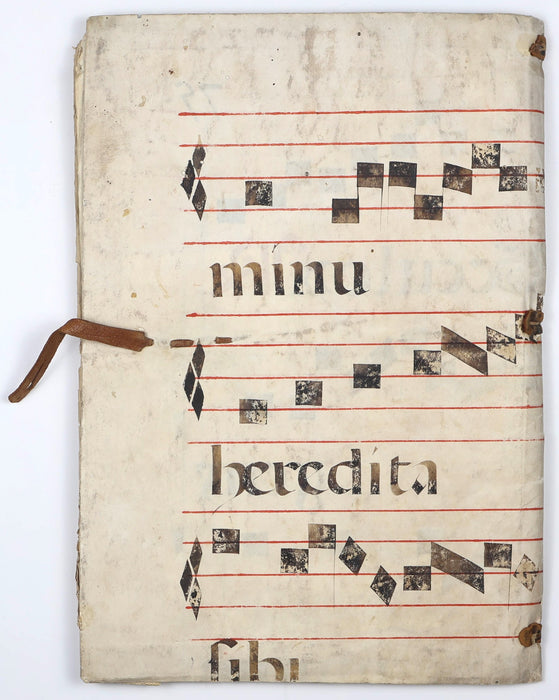 minu
heredita
sibi